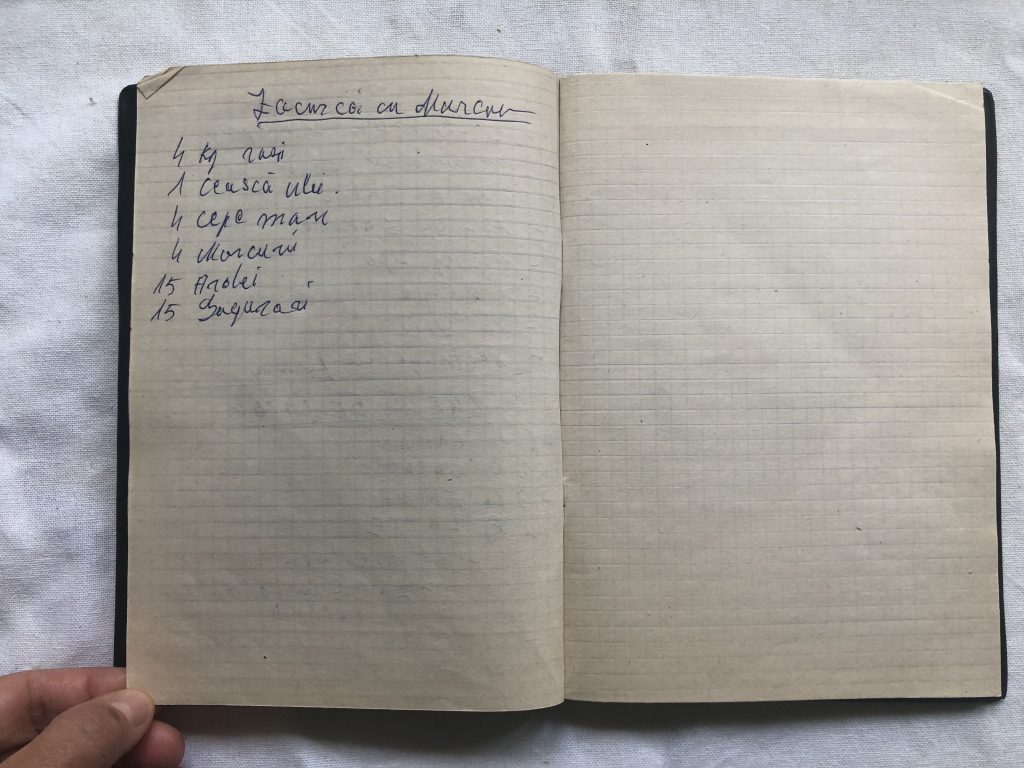 Zacuscă cu Morcovi
4 kg roșii
1 ceașcă ulei.
4 cepe mari
4 Morcovi
15 Ardei
15 Gogoșari